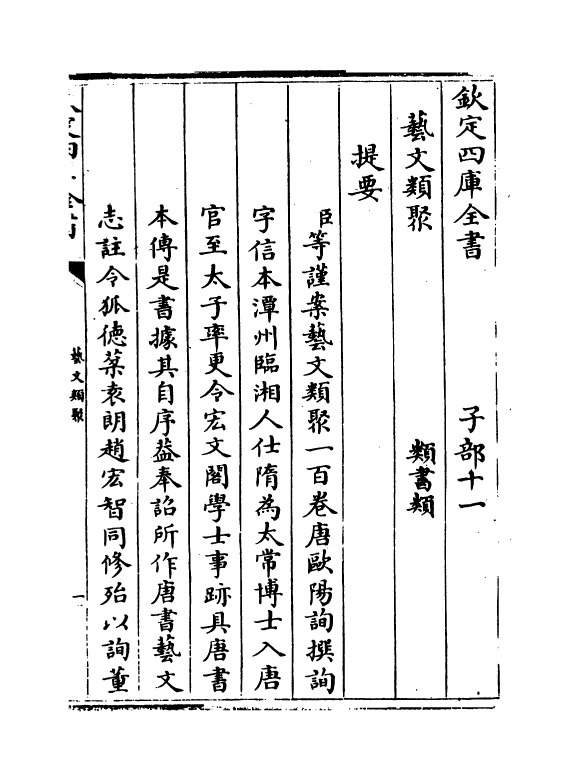 欽定四庫全書　子部十一
藝文類聚　類書類
提要
臣等謹案藝文類聚一百卷唐歐陽詢撰詢
字信本潭州臨湘人仕隋為太常博士入唐
官至太子率更令宏文閣學士事跡具唐書
本傳是書據其自序葢奉詔所作唐書藝文
志註令狐徳棻袁朗趙宏智同修殆以詢董
藝文類聚
一